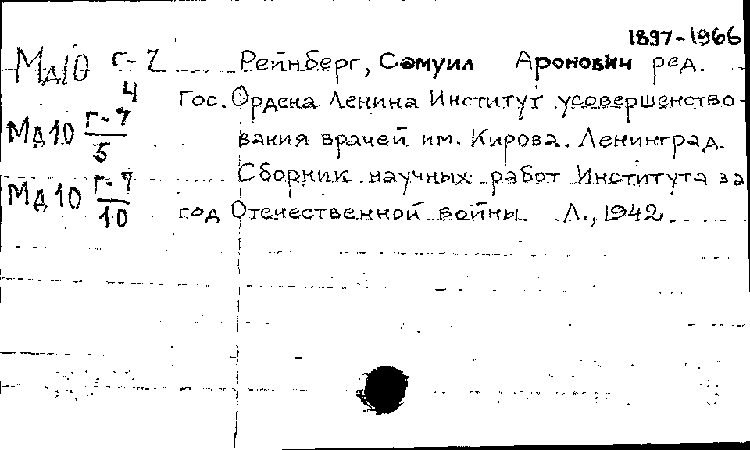 1897-1966
Мд10 г-7/4 Рейнберг, Самуил Аронович ред.
Гос. Ордена Ленина Институт усовершенство-
Мд10 г-7/5 вания врачей им. Кирова. Ленинград.
Сборник научных работ Института за
Мд10 г-7/10 год Отечественной войны Л., 1942